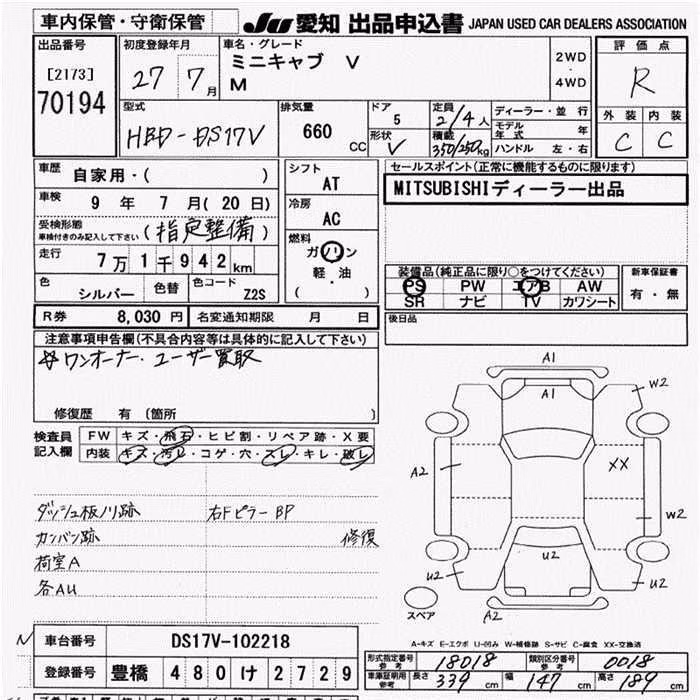 車内保管・守衛保管
JU 愛知 出品申込書 JAPAN USED CAR DEALERS ASSOCIATION
出品番号
[2173]
70194
初度登録年月
27 7月
車名・グレード
ミニキャブ V
M
2WD
・
4WD
評価点
R
外装 内装
C C
型式
HBD-DS17V
排気量
660
CC
ドア
5
形状
V
定員
2/4人
積載
350/250kg
ディーラー・並行
モデル年式 年
ハンドル 左・右
車歴
自家用・( )
車検
9 年 7 月( 20 日)
受検形態
車検付きのみ記入して下さい
(指定整備)
走行
7万1千942km
色
シルバー
色替
色コード
Z2S
シフト
AT
冷房
AC
燃料
ガソリン
軽・油
( )
セールスポイント(正常に機能するものに限ります)
MITSUBISHIディーラー出品
装備品(純正品に限り○をつけてください)
PS PW エアB AW
SR ナビ TV カワシート
新車保証書
有・無
R券 8,030円 名変通知期限 月 日
後日品
注意事項申告欄(不具合内容等は具体的に記入して下さい)
☆ワンオーナー.ユーザー買取
修復歴 有 (箇所 )
検査員
記入欄
FW キズ・飛石・ヒビ割・リペア跡・X要
内装 キズ・汚レ・コゲ・穴・スレ・キレ・破レ
ダッシュ板ノリ跡
右FピラーBP
カンバン跡
修復
荷室A
各AU
A1
A1
W2
A2
XX
W2
U2
U2
U2
A2
スペア
A-キズ E-エクボ U-凹み W-補修跡 S-サビ C-腐食 XX-交換済
N
車台番号 DS17V-102218
登録番号 豊橋 480け2729
形式指定番号
参考
18018
類別区分番号
参考
0018
車庫証明用
参考
長さ 339 cm 幅 147 cm 高さ 189 cm